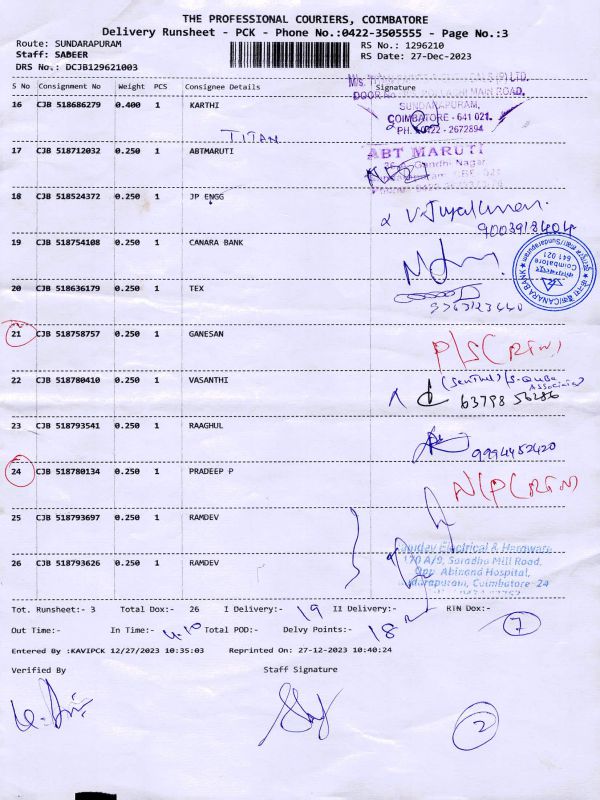 THE PROFESSIONAL COURIERS, COIMBATORE
Delivery Runsheet - PCK - Phone No.:0422-3505555 - Page No.:3
Route: SUNDARAPURAM RS No.: 1296210
Staff: SABEER RS Date: 27-Dec-2023
DRS No.: DCJB129621003
S No Consignment No Weight PCS Consignee Details Signature
16 CJB 518686279 0.400 1 KARTHI
MAIN ROAD,
SUNDARAPURAM,
COIMBATORE - 641 021.
PH. 0422 - 2672894
TITAN
17 CJB 518712032 0.250 1 ABTMARUTI
ABT MARUTI
Gandhi Nagar
18 CJB 518524372 0.250 1 JP ENGG
9003918404
19 CJB 518754108 0.250 1 CANARA BANK
CANARA BANK
Sundarapuram
Coimbatore
641 021
20 CJB 518636179 0.250 1 TEX
9363123440
21 CJB 518758757 0.250 1 GANESAN
P/S (RTN)
22 CJB 518780410 0.250 1 VASANTHI
(Senthil) /
63798 56286
23 CJB 518793541 0.250 1 RAAGHUL
9994452420
24 CJB 518780134 0.250 1 PRADEEP P
N/P (RTN)
25 CJB 518793697 0.250 1 RAMDEV
Ramdev Electrical & Hardware
170 A/9, Saradha Mill Road,
Opp. Abinand Hospital,
26 CJB 518793626 0.250 1 RAMDEV
Sundarapuram, Coimbatore-24
Tot. Runsheet:- 3 Total Dox:- 26 I Delivery:- 19 II Delivery:- RTN Dox:- 7
Out Time:- In Time:- 4.10 Total POD:- Delvy Points:- 18
Entered By :KAVIPCK 12/27/2023 10:35:03 Reprinted On: 27-12-2023 10:40:24
Verified By Staff Signature
2